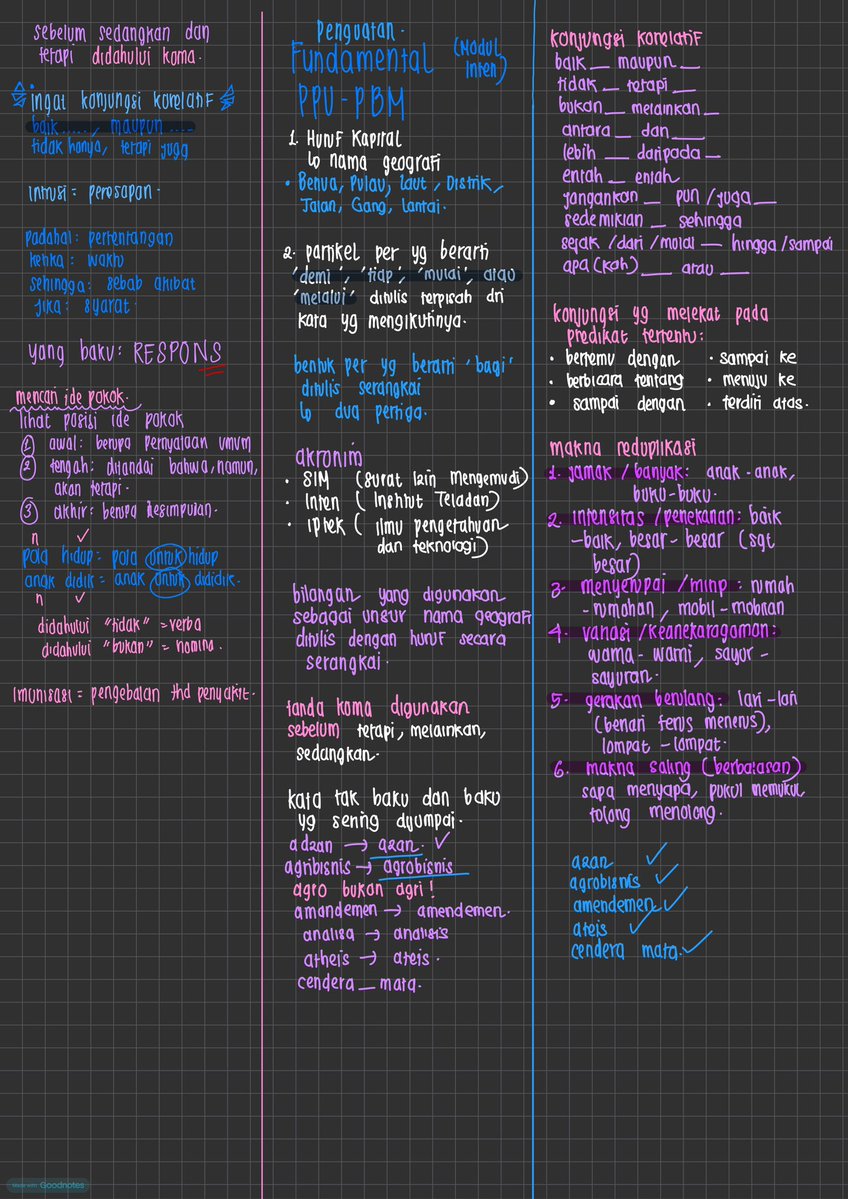 sebelum sedangkan dan
tetapi didahului koma.
ingat konjungsi korelatif
baik ....., maupun .....
tidak hanya, tetapi juga
Intrusi = perosapan.
padahal : pertentangan
ketika : waktu
sehingga : sebab akibat
jika : syarat.
yang baku : RESPONS
mencari ide pokok.
lihat posisi ide pokok
1 awal : berupa pernyataan umum
2 tengah : ditandai bahwa, namun,
akan tetapi.
3 akhir : berupa kesimpulan.
n ✓
pola hidup = pola untuk hidup
anak didik = anak untuk dididik.
n ✓
didahului "tidak" = verba
didahului "bukan" = nomina.
Imunisasi = pengebalan thd penyakit.
penguatan.
Fundamental (Modul
Inten)
PPU - PBM
1. Huruf Kapital
↳ nama geografi
• Benua, Pulau, laut, Distrik,
Jalan, Gang, lantai.
2. partikel per yg berarti
'demi', 'tiap', 'mulai', atau
'melalui' ditulis terpisah dri
kata yg mengikutinya.
bentuk per yg berarti 'bagi'
ditulis serangkai
↳ dua pertiga.
akronim
• SIM (surat Izin Mengemudi)
• Inten (Institut Teladan)
• Iptek (ilmu pengetahuan
dan teknologi)
bilangan yang digunakan
sebagai unsur nama geografi
ditulis dengan huruf secara
serangkai.
tanda koma digunakan
sebelum tetapi, melainkan,
sedangkan.
kata tak baku dan baku
yg sering dijumpai.
adzan → azan. ✓
agribisnis → agrobisnis
agro bukan agri !
amandemen → amendemen.
analisa → analisis
atheis → ateis.
cendera _ mata.
konjungsi korelatif
baik __ maupun __
tidak __ tetapi __
bukan __ melainkan __
antara __ dan __
lebih __ daripada __
entah __ entah
jangankan __ pun / juga __
sedemikian __ sehingga
sejak / dari / mulai __ hingga / sampai
apa (kah) __ atau __
konjungsi yg melekat pada
predikat tertentu :
• bertemu dengan • sampai ke
• berbicara tentang • menuju ke
• sampai dengan • terdiri atas.
makna reduplikasi
1. jamak / banyak : anak - anak,
buku - buku.
2. intensitas / penekanan : baik
- baik, besar - besar (sgt
besar)
3. menyerupai / mirip : rumah
- rumahan, mobil - mobilan
4. variasi / keanekaragaman :
warna - warni, sayur -
sayuran.
5. gerakan berulang : lari - lari
(berlari terus menerus),
lompat - lompat.
6. makna saling (berbalasan)
sapa menyapa, pukul memukul,
tolong menolong.
azan ✓
agrobisnis ✓
amendemen ✓
ateis ✓
cendera mata. ✓
Made with Goodnotes